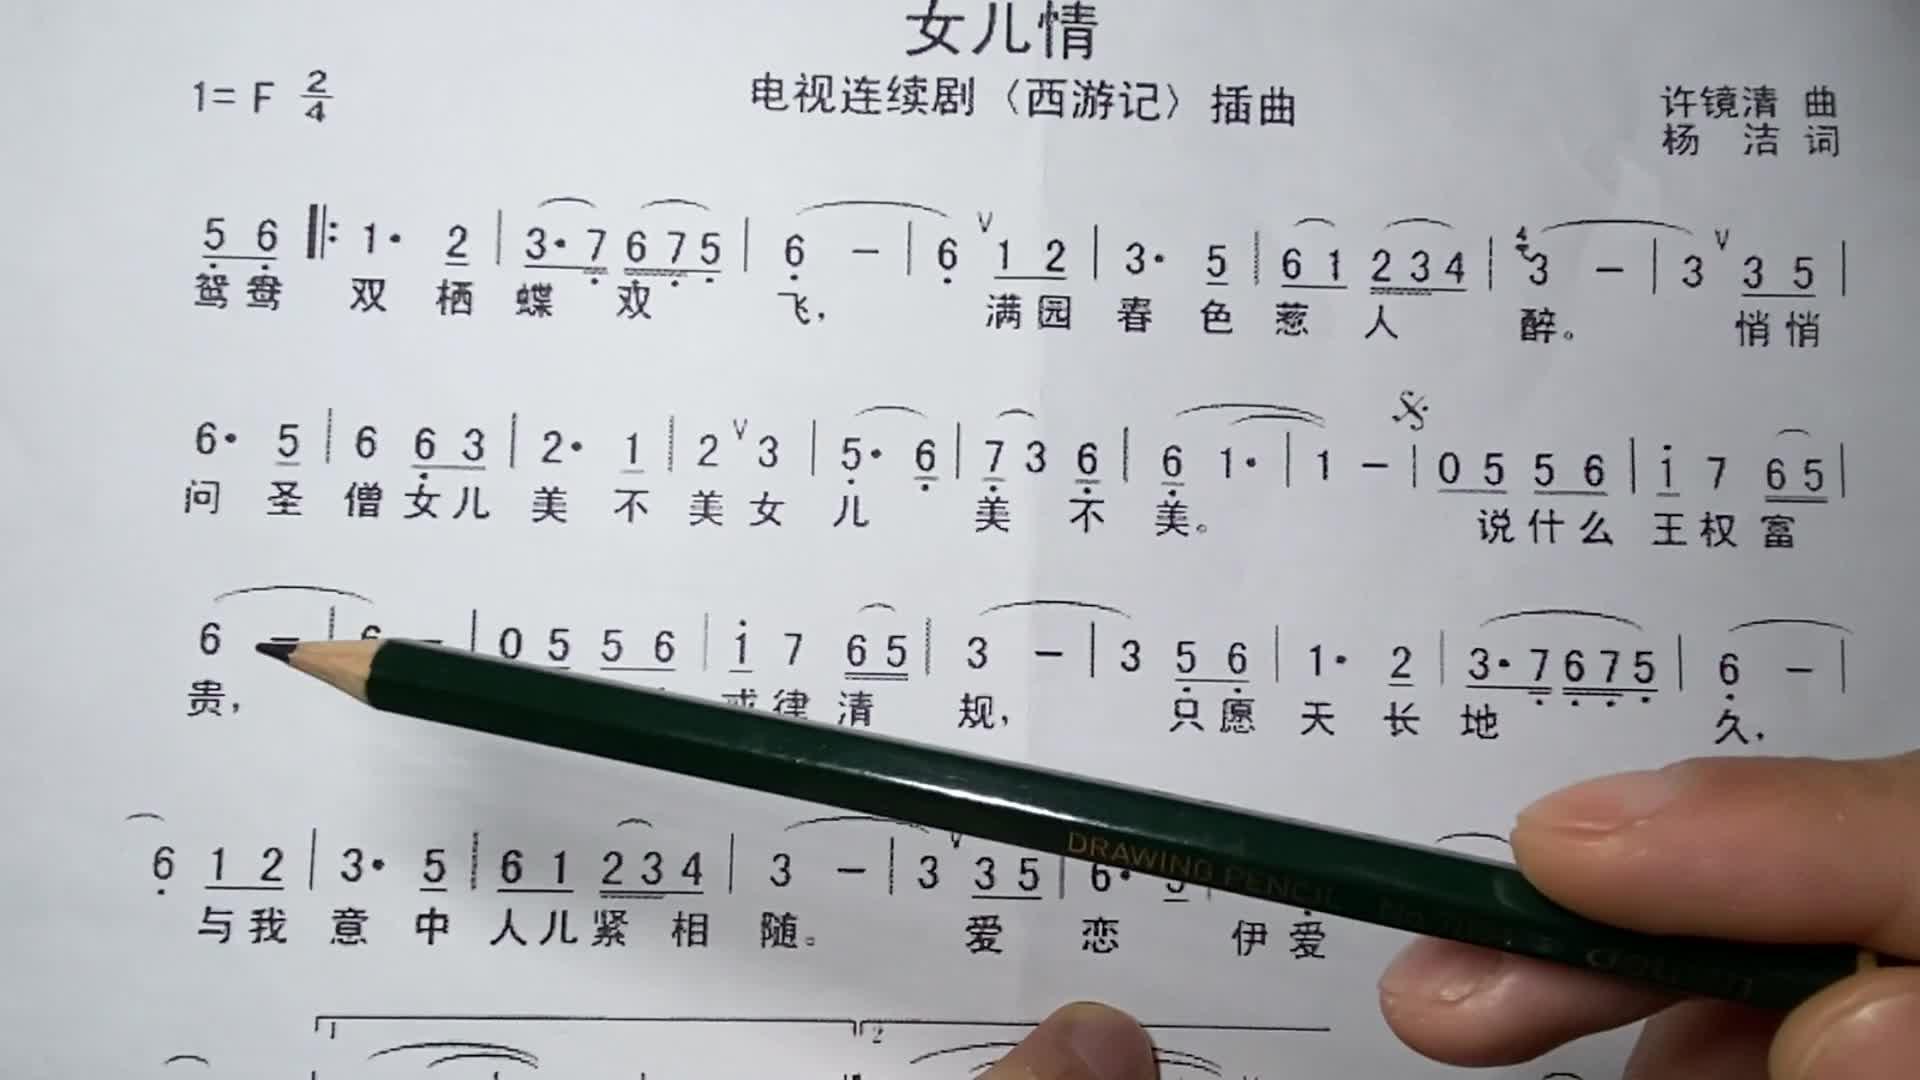 女儿情
1= F 2/4
电视连续剧〈西游记〉插曲
许镜清 曲
杨 洁 词
5 6 ‖: 1· 2 | 3·7 675 | 6 – | 6 ∨ 1 2 | 3· 5 | 6 1 234 | 4 3 – | 3 ∨ 3 5 |
鸳鸯 双栖蝶双飞, 满园春色惹人醉。 悄悄
6· 5 | 6 6 3 | 2· 1 | 2 ∨ 3 | 5· 6 | 7 3 6 | 6 1· | 1 – | 0 5 5 6 | i 7 6 5 |
问圣僧女儿美不美女儿美不美。 说什么王权富
6 – | 6 – | 0 5 5 6 | i 7 6 5 | 3 – | 3 5 6 | 1· 2 | 3·7 675 | 6 – |
贵, 戒律清规, 只愿天长地久,
6 1 2 | 3· 5 | 6 1 234 | 3 – | 3 ∨ 3 5 | 6· 5
与我意中人儿紧相随。 爱恋伊爱
1 2
DRAWING PENCIL